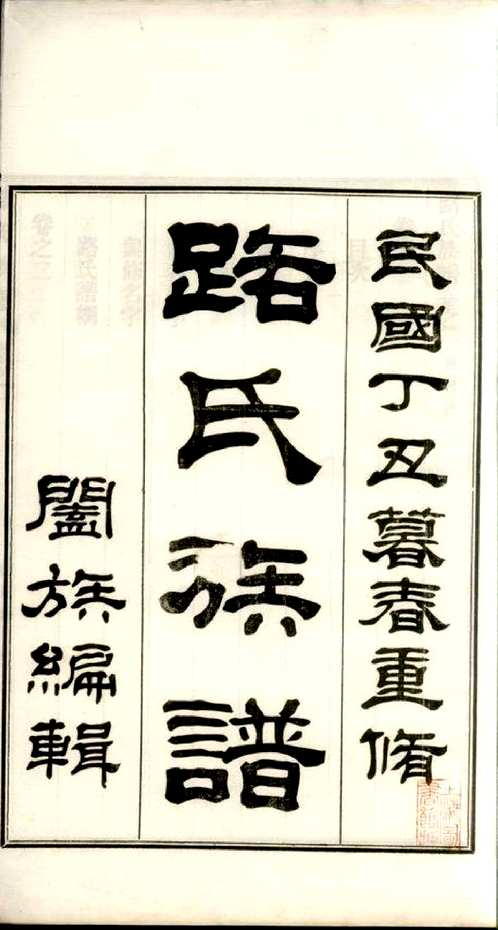 民國丁丑暮春重脩
路氏族譜
闔族編輯